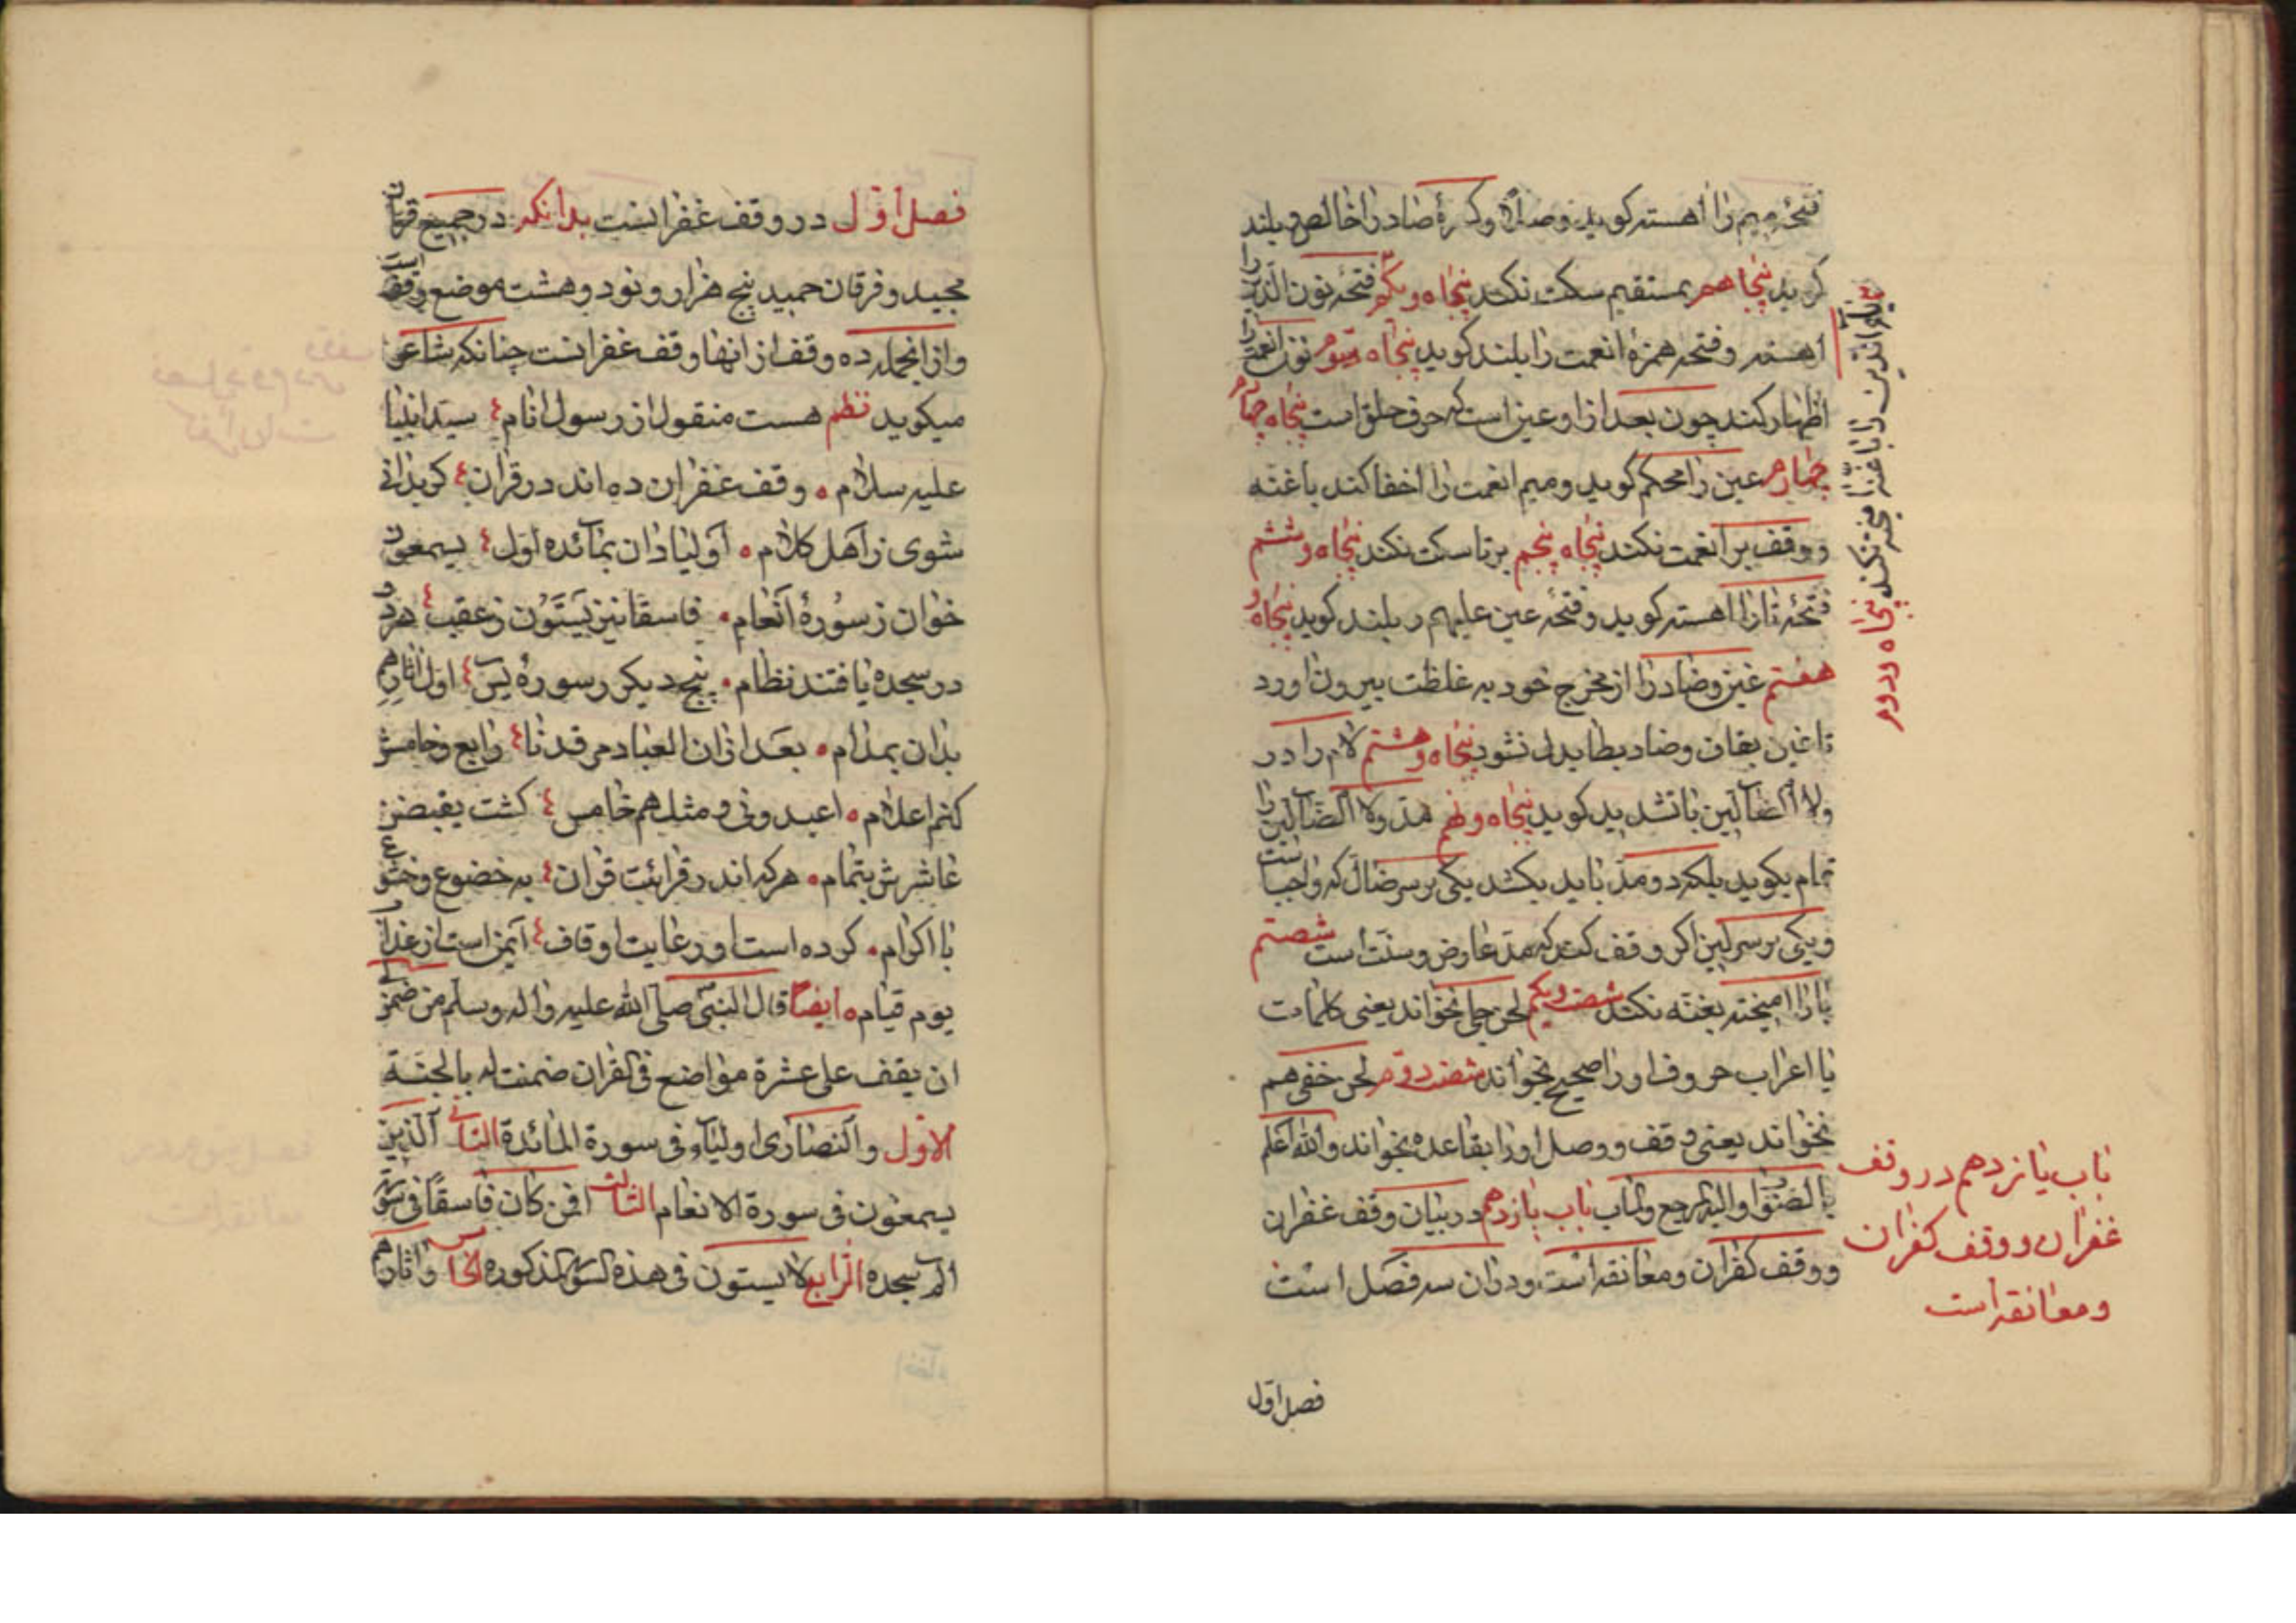 فتحۀ میم را اهسته کوید وصلاً وکسرۀ صاد را خالص و بلند
کوید پنجاهم بمستقیم سکت نکند پنجاه ویکم فتحۀ نون الذین را
اهسته وفتحه همزۀ انعمت را بلند کوید پنجاه سوم نون انعمت را
اظهار کند چون بعد از او عین است که حرف حلق است پنجاه چهارم
چهارم عین را محکم کوید ومیم انعمت را اخفا کند باغنه
ووقف بر انعمت نکند پنجاه پنجم برتا سکت نکند پنجاه وششم
فتحۀ تا را اهسته کوید وفتحه عین علیهم ر بلند کوید پنجاه و
هفتم غین وضاد را از مخرج خود به غلظت بیرون اورد
تا غین بقاف وضاد بطا بدل نشود پنجاه وهشتم لام را در
ولا الضالین با تشدید کوید پنجاه ونهم مد ولا الضالین را
تمام بکوید بلکه دو مد باید بکشد یکی بر سر ضال که واجب است
ویکی بر سر لین اکر وقف کند که مد عارض وسنت است شصتم
یا را امیخته بغنه نکند شصت ویکم لحن جلی نخواند یعنی کلمات
یا اعراب حروف اورا صحیح بخواند شصت دوم لحن خفی هم
نخواند یعنی وقف ووصل اورا بقاعده بخواند والله اعلم
بالصواب والیه المرجع والماب باب یازدهم در بیان وقف غفران
ووقف کفران ومعانقه است ودران سه فصل است
یا والذین را با غنه امیخته نکند پنجاه ودوم
باب یازدهم در وقف
غفران ووقف کفران
ومعانقه است
فصل اول
فصل اول در وقف غفرانست بدانکه در جمیع قران
مجید وفرقان حمید پنج هزار ونود وهشت موضع وقف است
وازانجمله ده وقف از انها وقف غفرانست چنانکه شاعر
میکوید نظم هست منقول از رسول انام ؛ سید انبیا
علیه سلام ۰ وقف غفران ده اند در قران ؛ کویدانی
شوی ز اهل کلام ۰ اولیا دان بمائده اول ؛ یسمعون
خوان ز سورۀ انعام ۰ فاسقا نیز یستون ز عقب ؛ هر دو
در سجده یافتند نظام ۰ پنج دیکر ز سورۀ یس ؛ اول اثارهم
بدان بمدام ۰ بعد ازان العباد مرقدنا ؛ رابع وخامش
کنم اعلام ۰ اعبدونی و مثلهم خامس ؛ کشت یقبضن
عاشرش بتمام ۰ هرکه اندر قرائت قران ؛ به خضوع وخشوع
با اکرام ۰ کرده است او رعایت اوقاف ؛ ایمن است از عذاب
یوم قیام ۰ ایضاً قال النبی صلی الله علیه واله وسلم من ضمن لی
ان یقف علی عشرة مواضع فی القران ضمنت له بالجنة
الاول والنصاری اولیاء فی سورة المائدة الثانی الذین
یسمعون فی سورة الانعام الثالث افمن کان فاسقاً فی سورة
الم سجده الرابع لا یستون فی هذه السورة المذکوره الخامس واثارهم